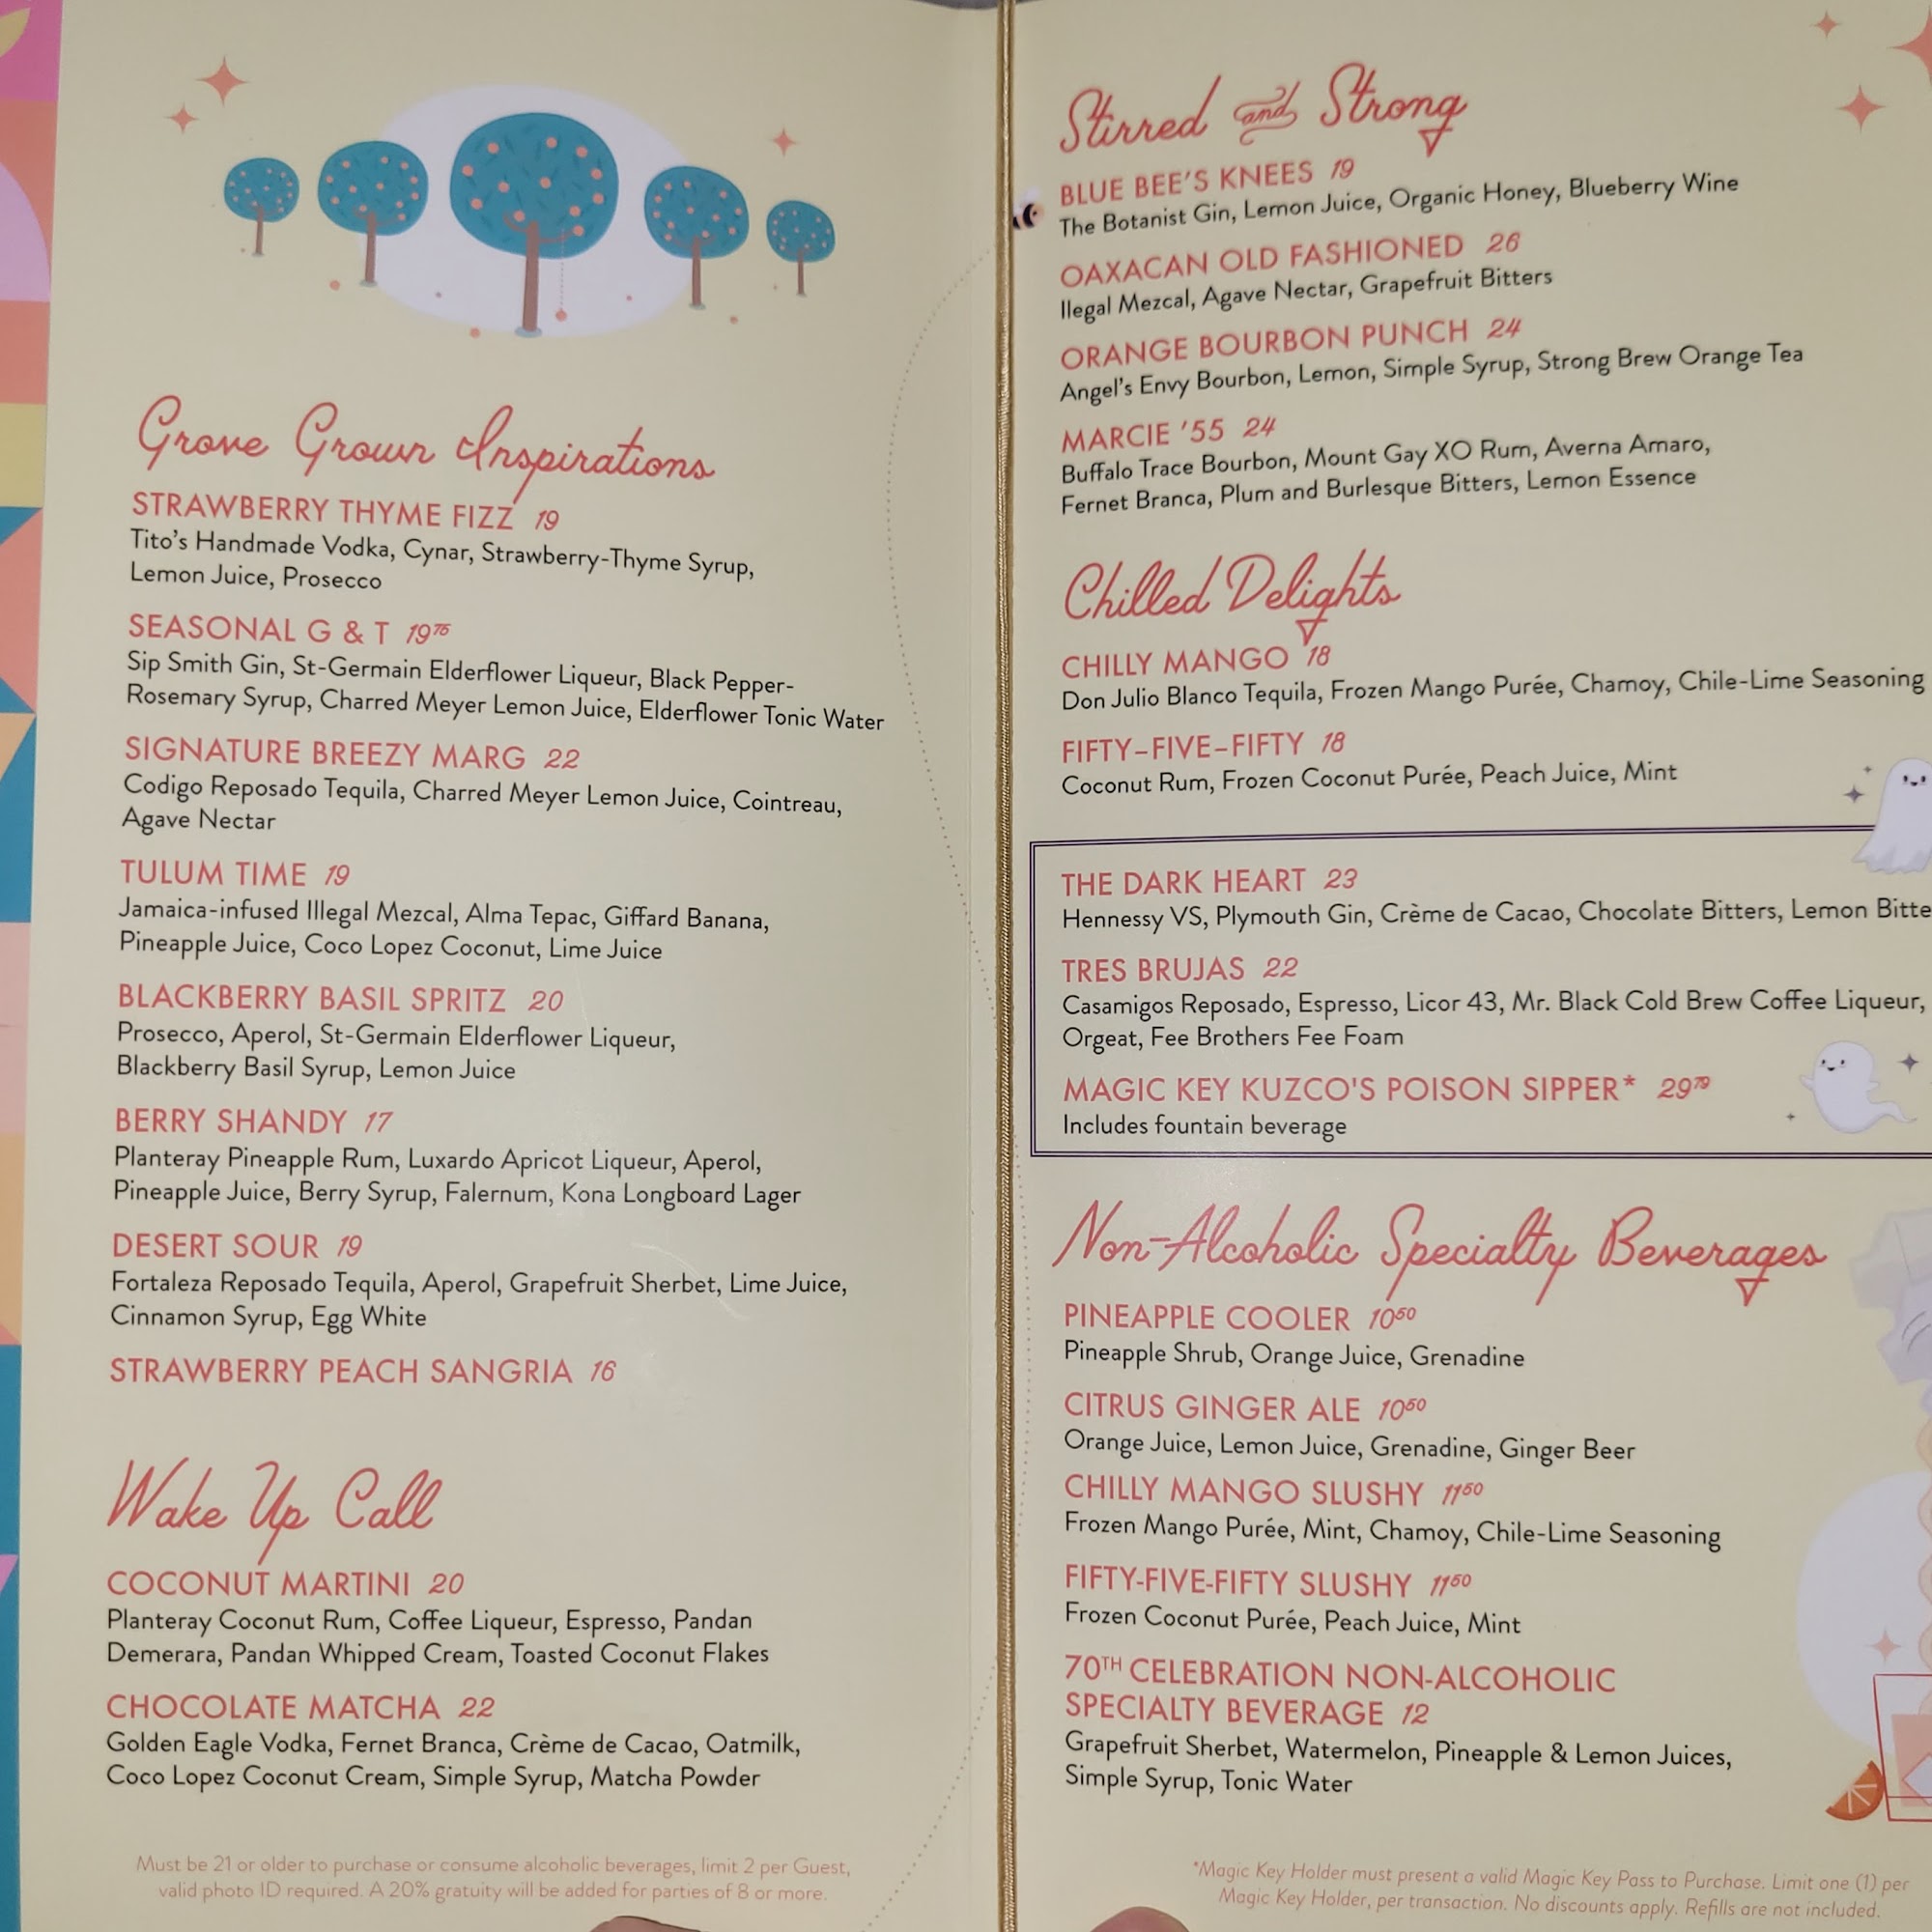 Grove Grown Inspirations
STRAWBERRY THYME FIZZ 19
Tito's Handmade Vodka, Cynar, Strawberry-Thyme Syrup,
Lemon Juice, Prosecco
SEASONAL G & T 19⁷⁵
Sip Smith Gin, St-Germain Elderflower Liqueur, Black Pepper-
Rosemary Syrup, Charred Meyer Lemon Juice, Elderflower Tonic Water
SIGNATURE BREEZY MARG 22
Codigo Reposado Tequila, Charred Meyer Lemon Juice, Cointreau,
Agave Nectar
TULUM TIME 19
Jamaica-infused Illegal Mezcal, Alma Tepac, Giffard Banana,
Pineapple Juice, Coco Lopez Coconut, Lime Juice
BLACKBERRY BASIL SPRITZ 20
Prosecco, Aperol, St-Germain Elderflower Liqueur,
Blackberry Basil Syrup, Lemon Juice
BERRY SHANDY 17
Planteray Pineapple Rum, Luxardo Apricot Liqueur, Aperol,
Pineapple Juice, Berry Syrup, Falernum, Kona Longboard Lager
DESERT SOUR 19
Fortaleza Reposado Tequila, Aperol, Grapefruit Sherbet, Lime Juice,
Cinnamon Syrup, Egg White
STRAWBERRY PEACH SANGRIA 16
Wake Up Call
COCONUT MARTINI 20
Planteray Coconut Rum, Coffee Liqueur, Espresso, Pandan
Demerara, Pandan Whipped Cream, Toasted Coconut Flakes
CHOCOLATE MATCHA 22
Golden Eagle Vodka, Fernet Branca, Crème de Cacao, Oatmilk,
Coco Lopez Coconut Cream, Simple Syrup, Matcha Powder
Must be 21 or older to purchase or consume alcoholic beverages, limit 2 per Guest,
valid photo ID required. A 20% gratuity will be added for parties of 8 or more.
Stirred and Strong
BLUE BEE'S KNEES 19
The Botanist Gin, Lemon Juice, Organic Honey, Blueberry Wine
OAXACAN OLD FASHIONED 26
Ilegal Mezcal, Agave Nectar, Grapefruit Bitters
ORANGE BOURBON PUNCH 24
Angel's Envy Bourbon, Lemon, Simple Syrup, Strong Brew Orange Tea
MARCIE '55 24
Buffalo Trace Bourbon, Mount Gay XO Rum, Averna Amaro,
Fernet Branca, Plum and Burlesque Bitters, Lemon Essence
Chilled Delights
CHILLY MANGO 18
Don Julio Blanco Tequila, Frozen Mango Purée, Chamoy, Chile-Lime Seasoning
FIFTY-FIVE-FIFTY 18
Coconut Rum, Frozen Coconut Purée, Peach Juice, Mint
THE DARK HEART 23
Hennessy VS, Plymouth Gin, Crème de Cacao, Chocolate Bitters, Lemon Bitte
TRES BRUJAS 22
Casamigos Reposado, Espresso, Licor 43, Mr. Black Cold Brew Coffee Liqueur,
Orgeat, Fee Brothers Fee Foam
MAGIC KEY KUZCO'S POISON SIPPER* 29⁷⁹
Includes fountain beverage
Non-Alcoholic Specialty Beverages
PINEAPPLE COOLER 10⁵⁰
Pineapple Shrub, Orange Juice, Grenadine
CITRUS GINGER ALE 10⁵⁰
Orange Juice, Lemon Juice, Grenadine, Ginger Beer
CHILLY MANGO SLUSHY 11⁵⁰
Frozen Mango Purée, Mint, Chamoy, Chile-Lime Seasoning
FIFTY-FIVE-FIFTY SLUSHY 11⁵⁰
Frozen Coconut Purée, Peach Juice, Mint
70TH CELEBRATION NON-ALCOHOLIC
SPECIALTY BEVERAGE 12
Grapefruit Sherbet, Watermelon, Pineapple & Lemon Juices,
Simple Syrup, Tonic Water
*Magic Key Holder must present a valid Magic Key Pass to Purchase. Limit one (1) per
Magic Key Holder, per transaction. No discounts apply. Refills are not included.